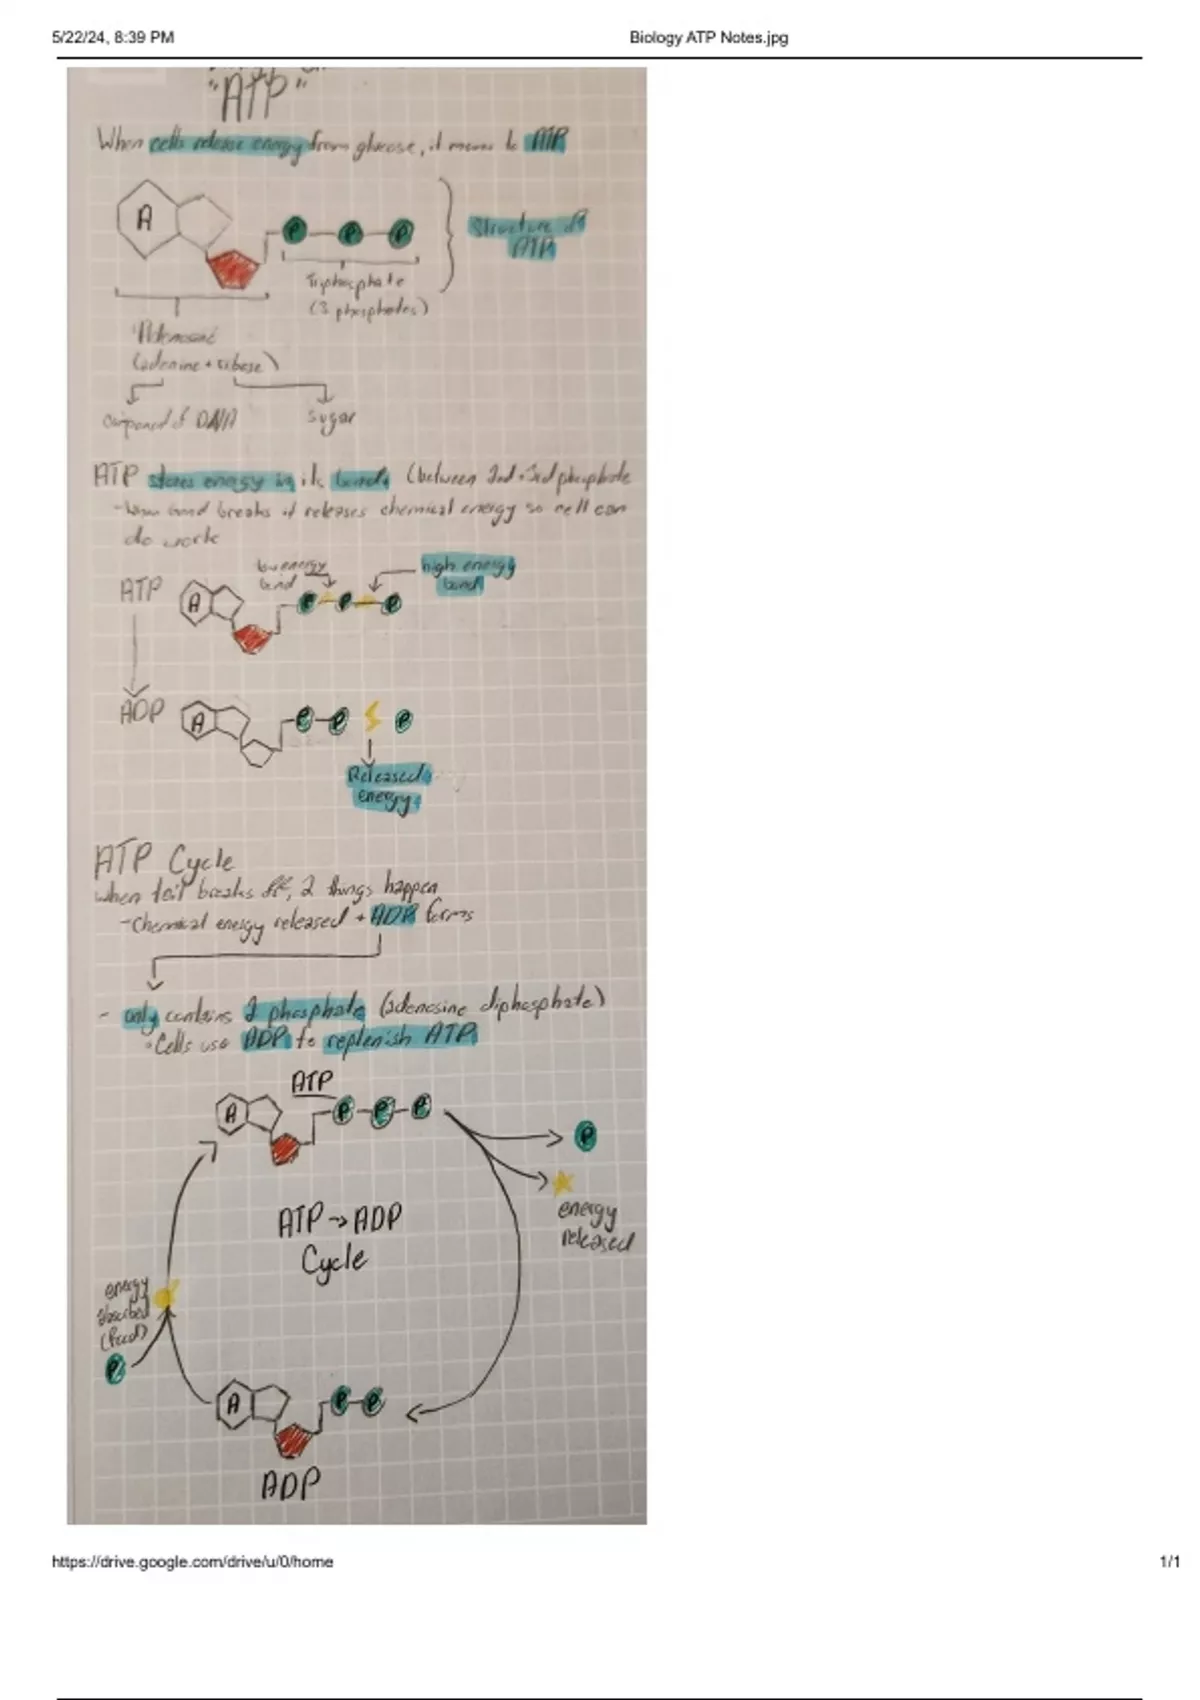 5/22/24, 8:39 PM
Biology ATP Notes.jpg
"ATP"
When cells release energy from glucose, it moves to ATP
A
P P P
Structure of
ATP
Triphosphate
(3 phosphates)
Adenosine
(adenine + ribose)
component of DNA
sugar
ATP stores energy in its bonds (between 2nd + 3rd phosphate
- When bond breaks it releases chemical energy so cell can
do work
low energy
bond
high energy
bond
ATP
A
P P P
ADP
A
P P P
Released
energy
ATP Cycle
when tail breaks off, 2 things happen
- Chemical energy released + ADP forms
- only contains 2 phosphate (adenosine diphosphate)
• Cells use ADP to replenish ATP
ATP
A
P P P
P
energy
released
ATP → ADP
Cycle
energy
absorbed
(food)
P
A
P P
ADP
https://drive.google.com/drive/u/0/home
1/1